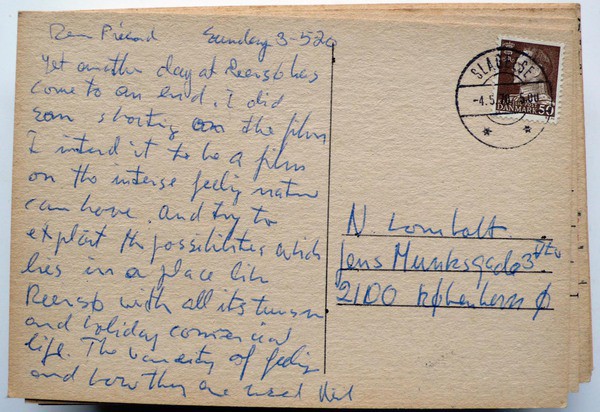 Sunday 3-5 70
Yet another day at Reersø has
come to an end. I did
som shooting on the film
I intend it to be a film
on the intense feeling nature
can have. And try to
exploit the possibilities which
lies in a place like
Reersø with all its turism
and holiday commercial
life. The of feeling
and how they are used
SLAGELSE
-4.5.70
DANMARK
50
N. Lomholt
Jens Munksgade 3
2100 København Ø